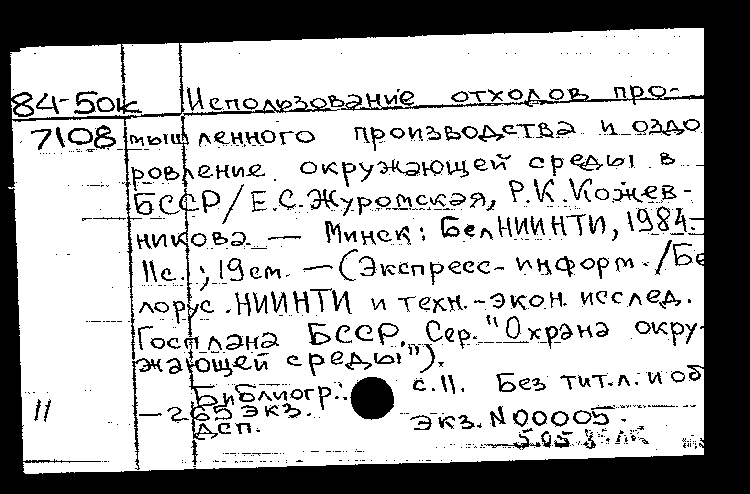 84-50к Использование отходов про-
7108 мышленного производства и оздо
ровление окружающей среды в
БССР/Е.С.Журомская, Р.К.Кожев-
никова. — Минск: БелНИИНТИ, 1984.-
11с.; 19см. — (Экспресс-информ./Бе
лорус.НИИНТИ и техн.-экон. исслед.
Госплана БССР. Сер. "Охрана окру-
жающей среды").
Библиогр.: с.11. Без тит.л. и об
11 — 265 экз.
ДСП. Экз. N 00005.
5.05